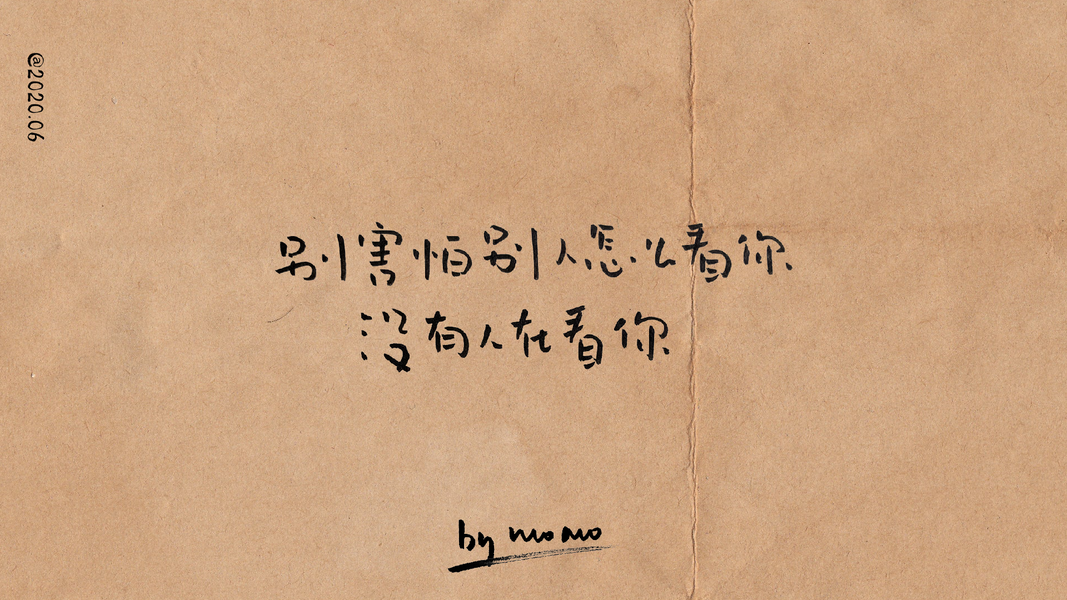 @2020.06
别害怕别人怎么看你
没有人在看你
by momo